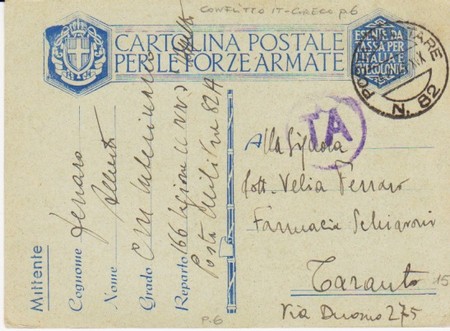 CONFLITTO IT-GRECO p.6
CARTOLINA POSTALE
PER LE FORZE ARMATE
ESENTE DA
TASSA PER
L'ITALIA E
LE COLONIE
N. 82
TA
Mittente
Cognome Ferraro
Nome Alberto
Grado
Reparto 166 Legione
Posta Militare 82 A
Alla Signora
Dott. Velia Ferraro
Farmacia Schiavoni
Taranto
Via Duomo 275
15
P.6